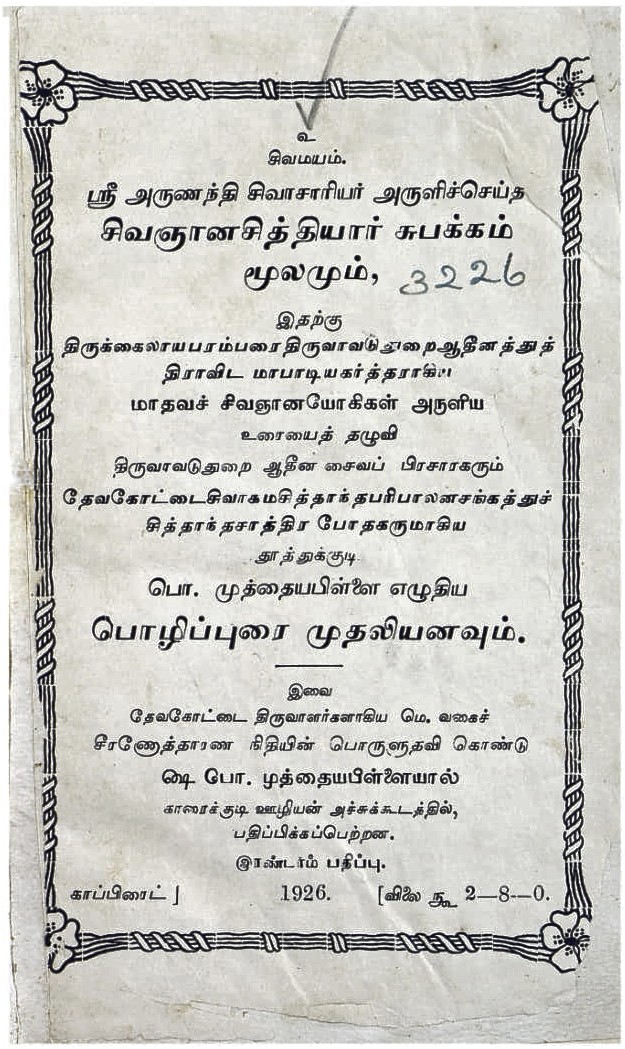 உ
சிவமயம்.
ஸ்ரீ அருணந்தி சிவாசாரியர் அருளிச்செய்த
சிவஞானசித்தியார் சுபக்கம்
மூலமும்,
3226
இதற்கு
திருக்கைலாயபரம்பரைதிருவாவடுதுறைஆதீனத்துத்
திராவிட மாபாடியகர்த்தராகிய
மாதவச் சிவஞானயோகிகள் அருளிய
உரையைத் தழுவி
திருவாவடுதுறை ஆதீன சைவப் பிரசாரகரும்
தேவகோட்டைசிவாகமசித்தாந்தபரிபாலனசங்கத்துச்
சித்தாந்தசாத்திர போதகருமாகிய
தூத்துக்குடி
பொ. முத்தையபிள்ளை எழுதிய
பொழிப்புரை முதலியனவும்.
இவை
தேவகோட்டை திருவாளர்களாகிய மெ. வகைச்
சீரணோத்தாரண நிதியின் பொருளுதவி கொண்டு
௸ பொ. முத்தையபிள்ளையால்
காரைக்குடி ஊழியன் அச்சுக்கூடத்தில்,
பதிப்பிக்கப்பெற்றன.
இரண்டாம் பதிப்பு.
காப்பிரைட் ] 1926. [விலை ரூ 2—8—0.